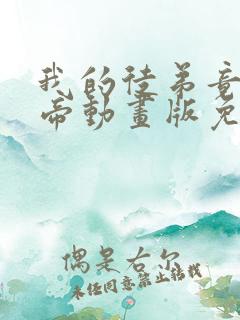 我的徒弟竟
帝動畫版免
偶是右尔
未经同意禁止转载